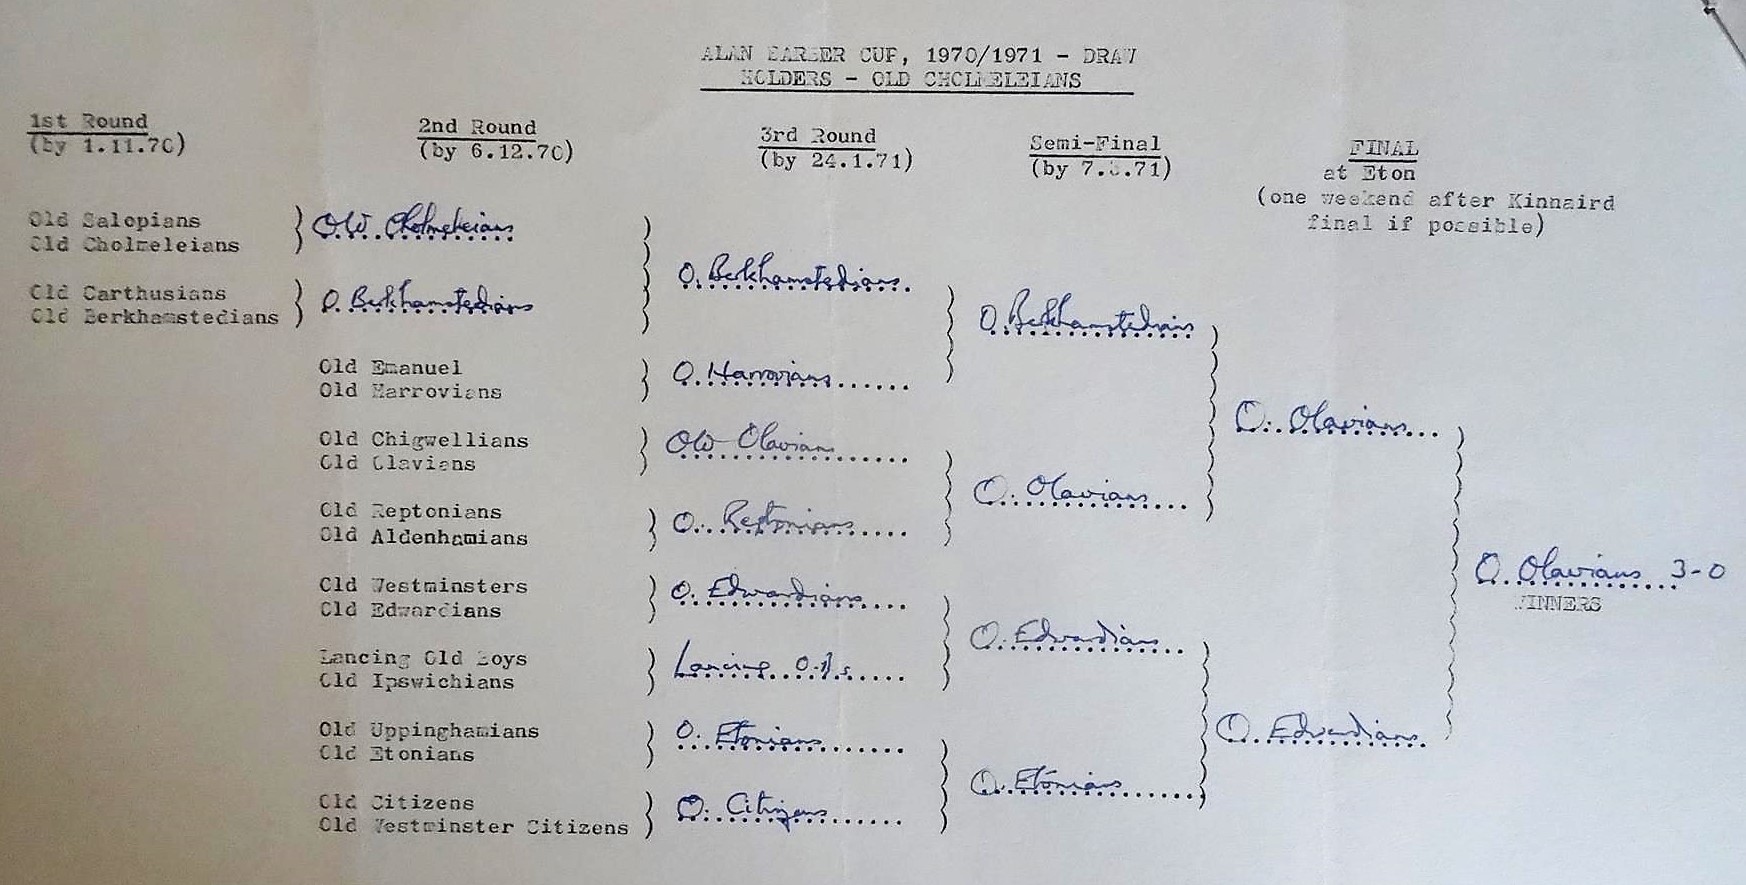 ALAN BARBER CUP, 1970/1971 - DRAW
HOLDERS - OLD CHOLMELEIANS
1st Round
(by 1.11.70)
2nd Round
(by 6.12.70)
3rd Round
(by 24.1.71)
Semi-Final
(by 7.3.71)
FINAL
at Eton
(one weekend after Kinnaird
final if possible)
Old Salopians
Old Cholmeleians
Old Carthusians
Old Berkhamstedians
Old Cholmeleians
O. Berkhamstedians
Old Emanuel
Old Harrovians
Old Chigwellians
Old Olavians
Old Reptonians
Old Aldenhamians
Old Westminsters
Old Edwardians
Lancing Old Boys
Old Ipswichians
Old Uppinghamians
Old Etonians
Old Citizens
Old Westminster Citizens
O. Berkhamstedians
O. Harrovians
Old Olavians
O. Reptonians
O. Edwardians
Lancing O.B.s
O. Etonians
O. Citizens
O. Berkhamstedians
O. Olavians
O. Edwardians
O. Etonians
O. Olavians
O. Edwardians
O. Olavians 3-0
WINNERS